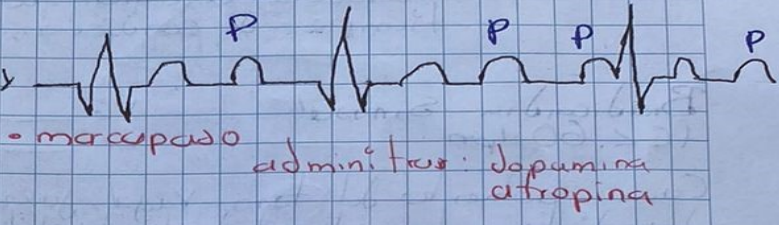 P P P P
• marcapaso
administrar: dopamina
atropina